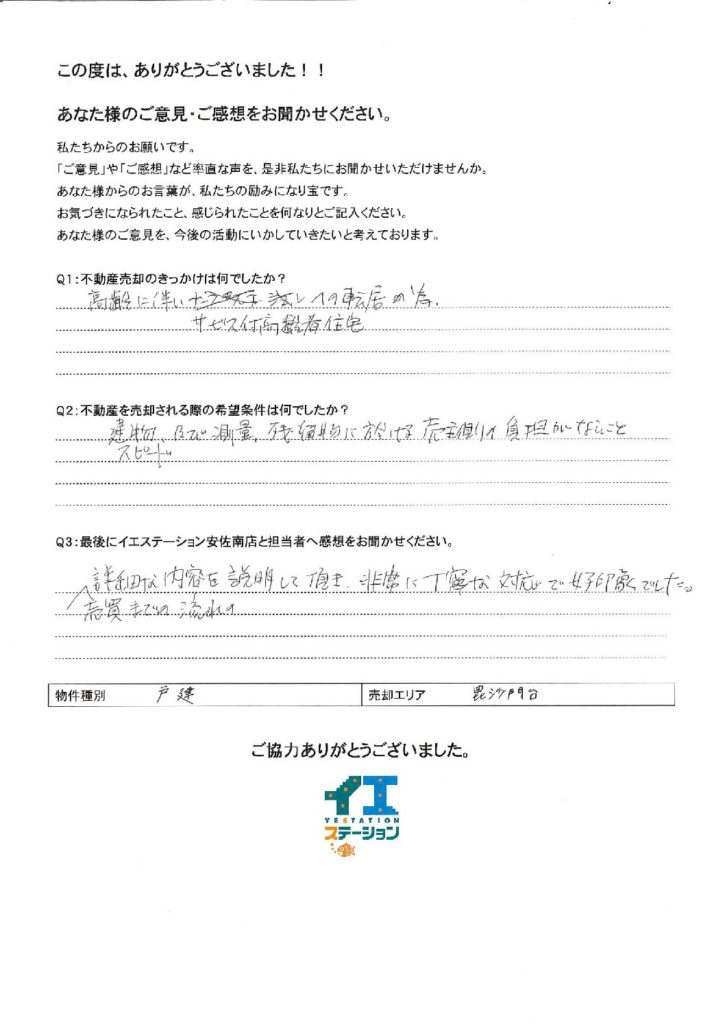 この度は、ありがとうございました！！
あなた様のご意見・ご感想をお聞かせください。
私たちからのお願いです。
「ご意見」や「ご感想」など率直な声を、是非私たちにお聞かせいただけませんか。
あなた様からのお言葉が、私たちの励みになり宝です。
お気づきになられたこと、感じられたことを何なりとご記入ください。
あなた様のご意見を、今後の活動にいかしていきたいと考えております。
Q1：不動産売却のきっかけは何でしたか？
高齢に伴い への転居の為.
サービス付高齢者住宅
Q2：不動産を売却される際の希望条件は何でしたか？
建物、及び測量、残留物に於ける売主側の負担がないこと
スピード
Q3：最後にイエステーション安佐南店と担当者へ感想をお聞かせください。
詳細な内容を説明して頂き、非常に丁寧な対応で好印象でした。
売買までの流れの
物件種別 戸建 売却エリア 毘沙門台
ご協力ありがとうございました。
イエ
YESTATION
ステーション